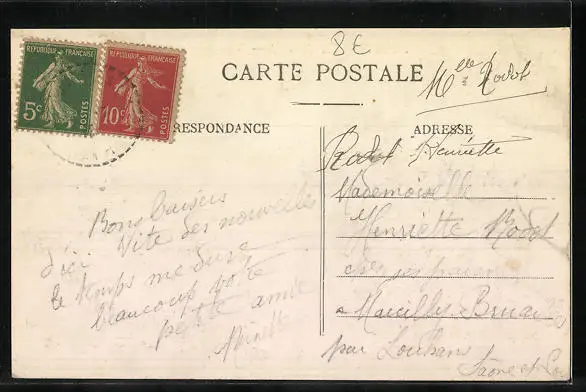 8E
RÉPUBLIQUE FRANÇAISE
5c
POSTES
RÉPUBLIQUE FRANÇAISE
10c
POSTES
CARTE POSTALE
Mlle Rodot
RESPONDANCE
ADRESSE
Bons baisers
d'ici. Vite des nouvelles
le temps me dure
beaucoup votre
petite amie
Rodot Henriette
Mademoiselle
Henriette Rodot
chez ses parents
à
par Louhans
Saône et Loi